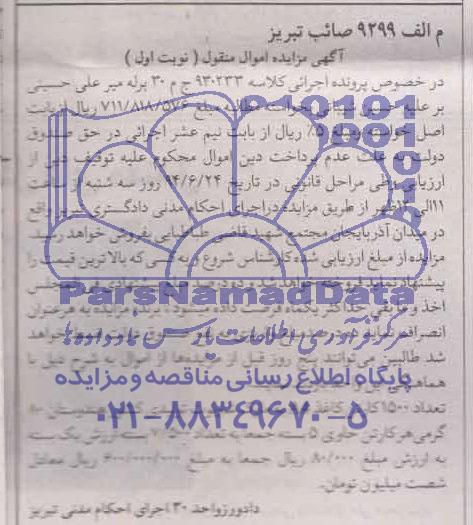 م الف ۹۲۹۹ صائب تبریز
آگهی مزایده اموال منقول ( نوبت اول )
در خصوص پرونده اجرائی کلاسه ۹۳۰۲۳۳ ج م ۳۰ برله میر علی حسینی
بر علیه بخواسته مطالبه مبلغ ۷۱۱/۸۱۸/۵۷۶ ریال از بابت
اصل خواسته ومبلغ ۵٪ ریال از بابت نیم عشر اجرائی در حق صندوق
دولت به علت عدم پرداخت دین اموال محکوم علیه توقیف پس از
ارزیابی وطی مراحل قانونی در تاریخ ۹۴/۶/۲۴ روز سه شنبه از ساعت
۱۱الی ۱۲ظهر از طریق مزایده دراجرای احکام مدنی دادگستری تبریز واقع
در میدان آذربایجان مجتمع شهید قاضی طباطبایی بفروش خواهد رسید.
مزایده از مبلغ ارزیابی شده کارشناس شروع و به کسی که بالا ترین قیمت را
پیشنهاد نماید فروخته خواهد شد و ده درصد مبلغ پیشنهادی فی المجلس
اخذ و مابقی حداکثر یکماه فرصت داده میشود. برنده مزایده به هر عنوان
انصراف نماید ده درصد دولت خواهد
شد طالبین می توانند پنج روز قبل از مزایده ها از اموال به شرح ذیل با
هماهنگی
تعداد ۱۵۰۰ کارتن کاغذ ۸۰
گرمی هر کارتن حاوی ۵ بسته جمعا به تعداد ۷/۵۰۰ بسته ارزش یک بسته
به ارزش مبلغ ۸۰/۰۰۰ ریال جمعا به مبلغ ۶۰۰/۰۰۰/۰۰۰ ریال معادل
شصت میلیون تومان.
دادورز واحد ۳۰ اجرای احکام مدنی تبریز
ParsNamadData
مرکز فرآوری اطلاعات پارس نماد داده ها
پایگاه اطلاع رسانی مناقصه و مزایده
۰۲۱-۸۸۳۴۹۶۷۰-۵